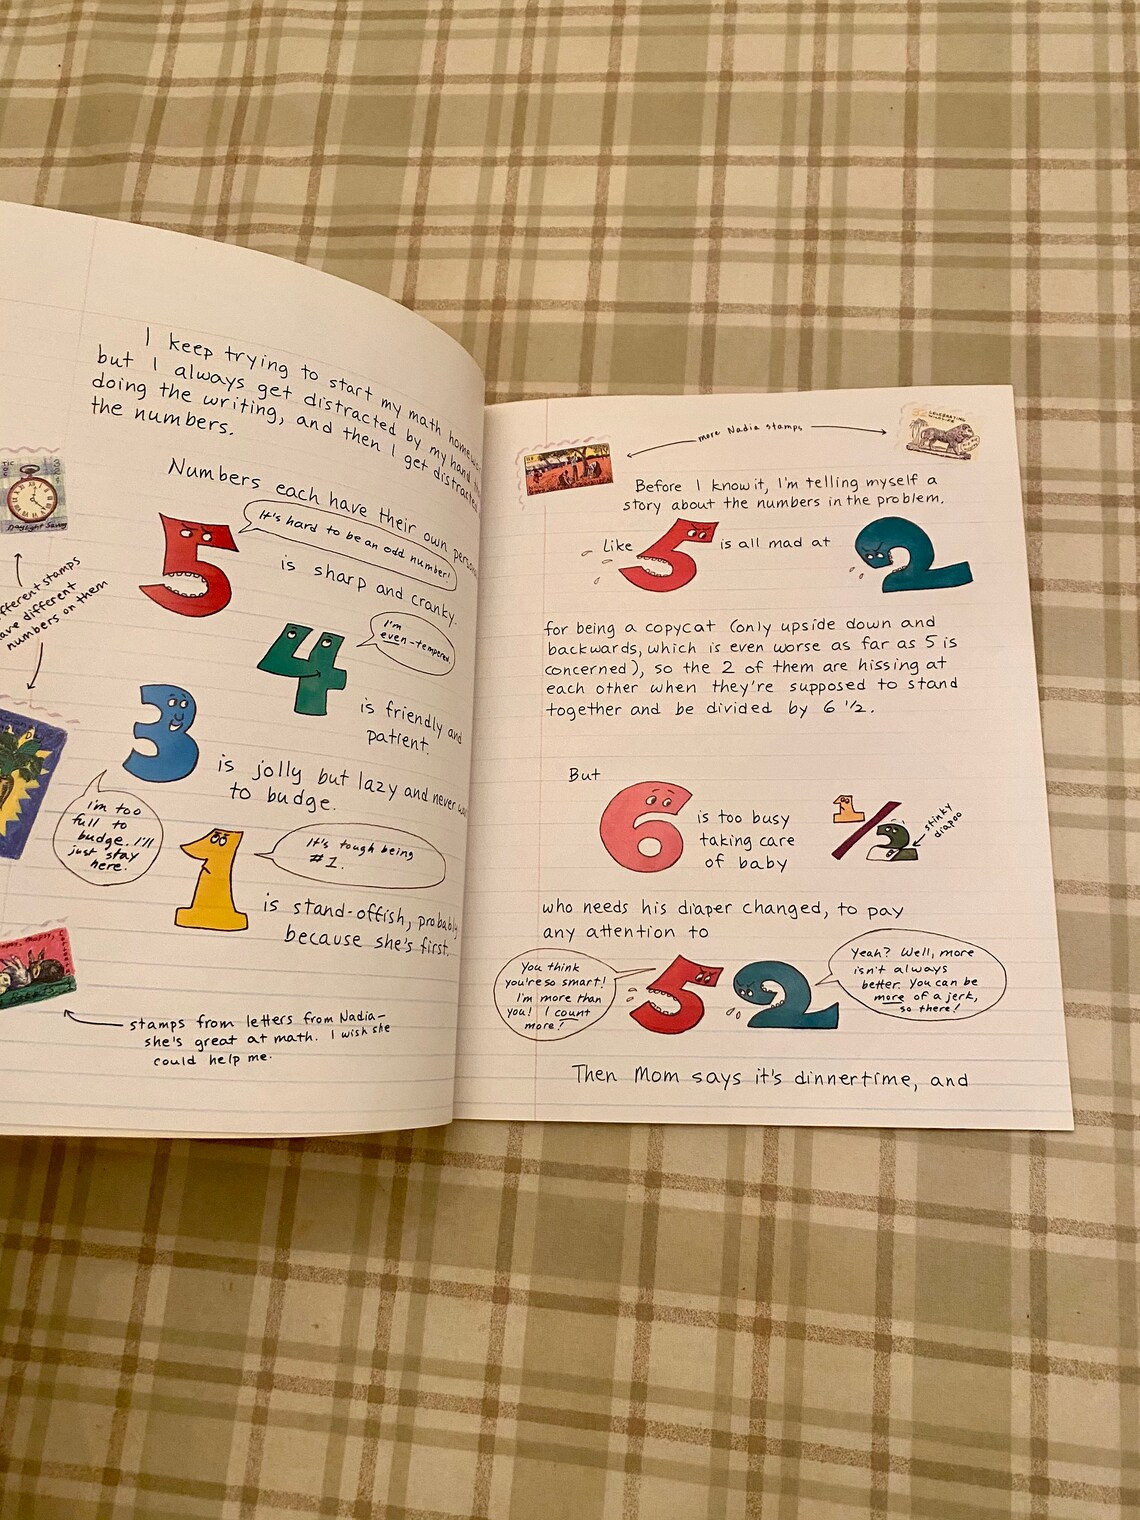 I keep trying to start my math
but I always get distracted by my hand
doing the writing, and then I get distracted
the numbers.
Numbers each have their own
5
It's hard to be an odd number!
is sharp and cranky.
4
I'm
even-tempered.
is friendly and
patient.
3
is jolly but lazy and never
to budge.
I'm too
full to
budge. I'll
just stay
here.
1
It's tough being
#1.
is stand-offish, probably
because she's first.
Daylight Saving
stamps
have different
numbers on them
stamps from letters from Nadia-
she's great at math. I wish she
could help me.
more Nadia stamps
Before I know it, I'm telling myself a
story about the numbers in the problem.
Like 5 is all mad at 2
for being a copycat (only upside down and
backwards, which is even worse as far as 5 is
concerned), so the 2 of them are hissing at
each other when they're supposed to stand
together and be divided by 6 1/2.
But
6 is too busy
taking care
of baby
1/2
stinky
diapoo
who needs his diaper changed, to pay
any attention to
You think
you're so smart!
I'm more than
you! I count
more!
5 2
Yeah? Well, more
isn't always
better. You can be
more of a jerk,
so there!
Then Mom says it's dinnertime, and